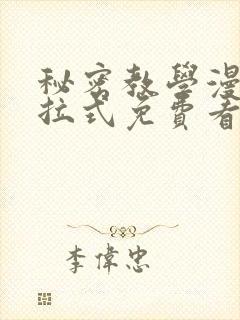 秘密教學漫
拉式免費看
李偉忠